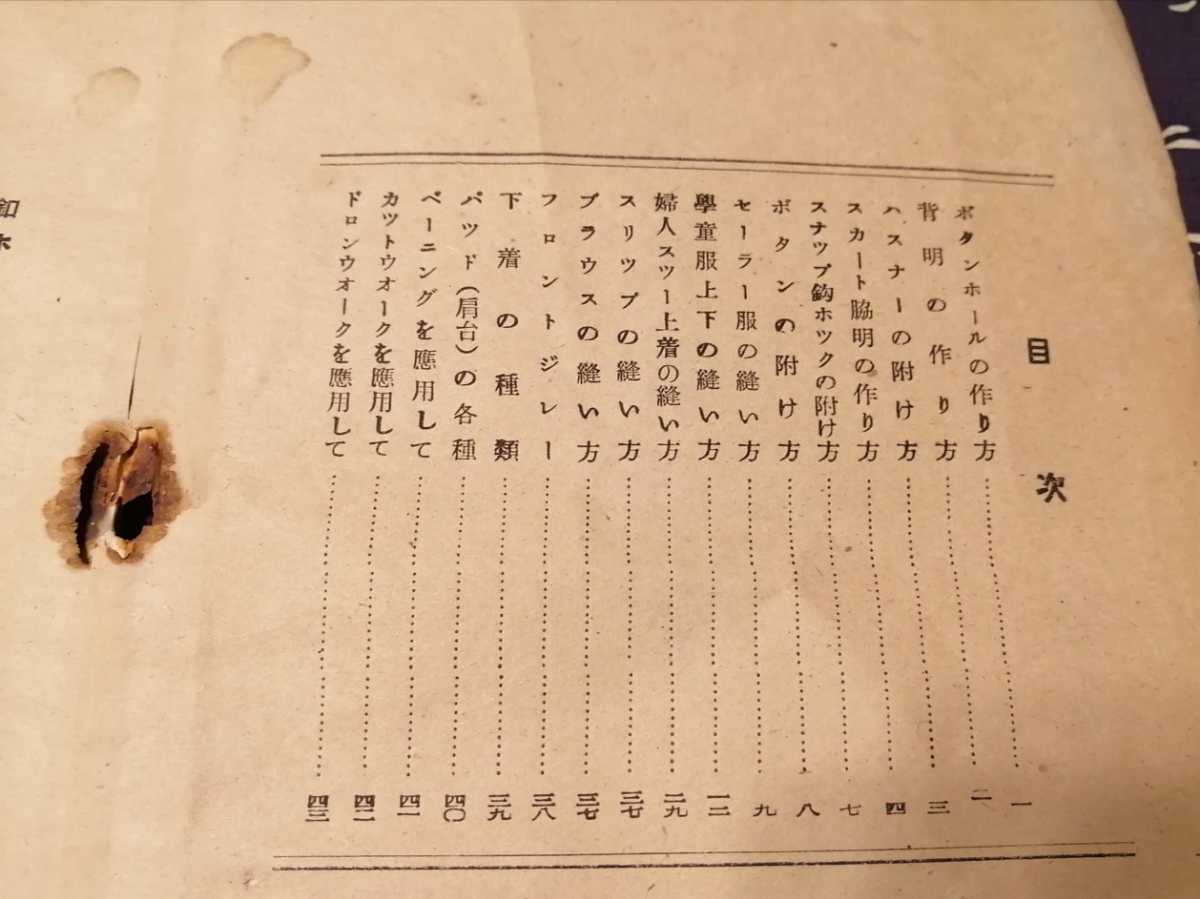 目次
ボタンホールの作り方……一
背明の作り方……二
ハスナーの附け方……三
スカート脇明の作り方……四
スナツプ鈎ホツクの附け方……七
ボタンの附け方……八
セーラー服の縫い方……九
學童服上下の縫い方……一二
婦人スツー上着の縫い方……二九
スリツプの縫い方……三七
ブラウスの縫い方……三七
フロントジレー……三八
下着の種類……三九
パツド(肩台)の各種……四〇
ベーニングを應用して……四一
カツトウオークを應用して……四二
ドロンウオークを應用して……四三
釦ホ